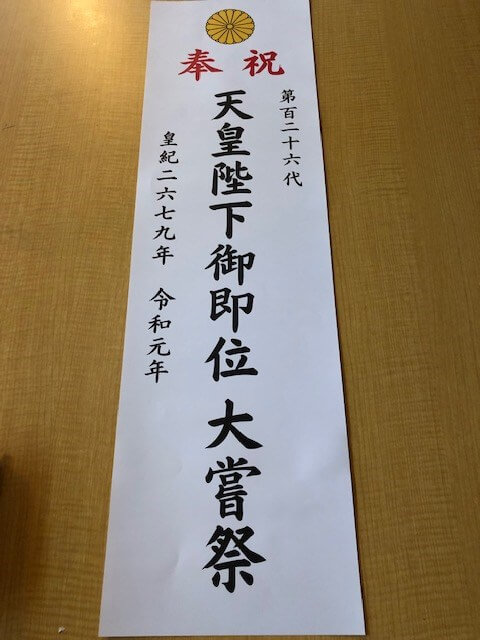 奉祝
第百二十六代
天皇陛下御即位 大嘗祭
皇紀二六七九年 令和元年